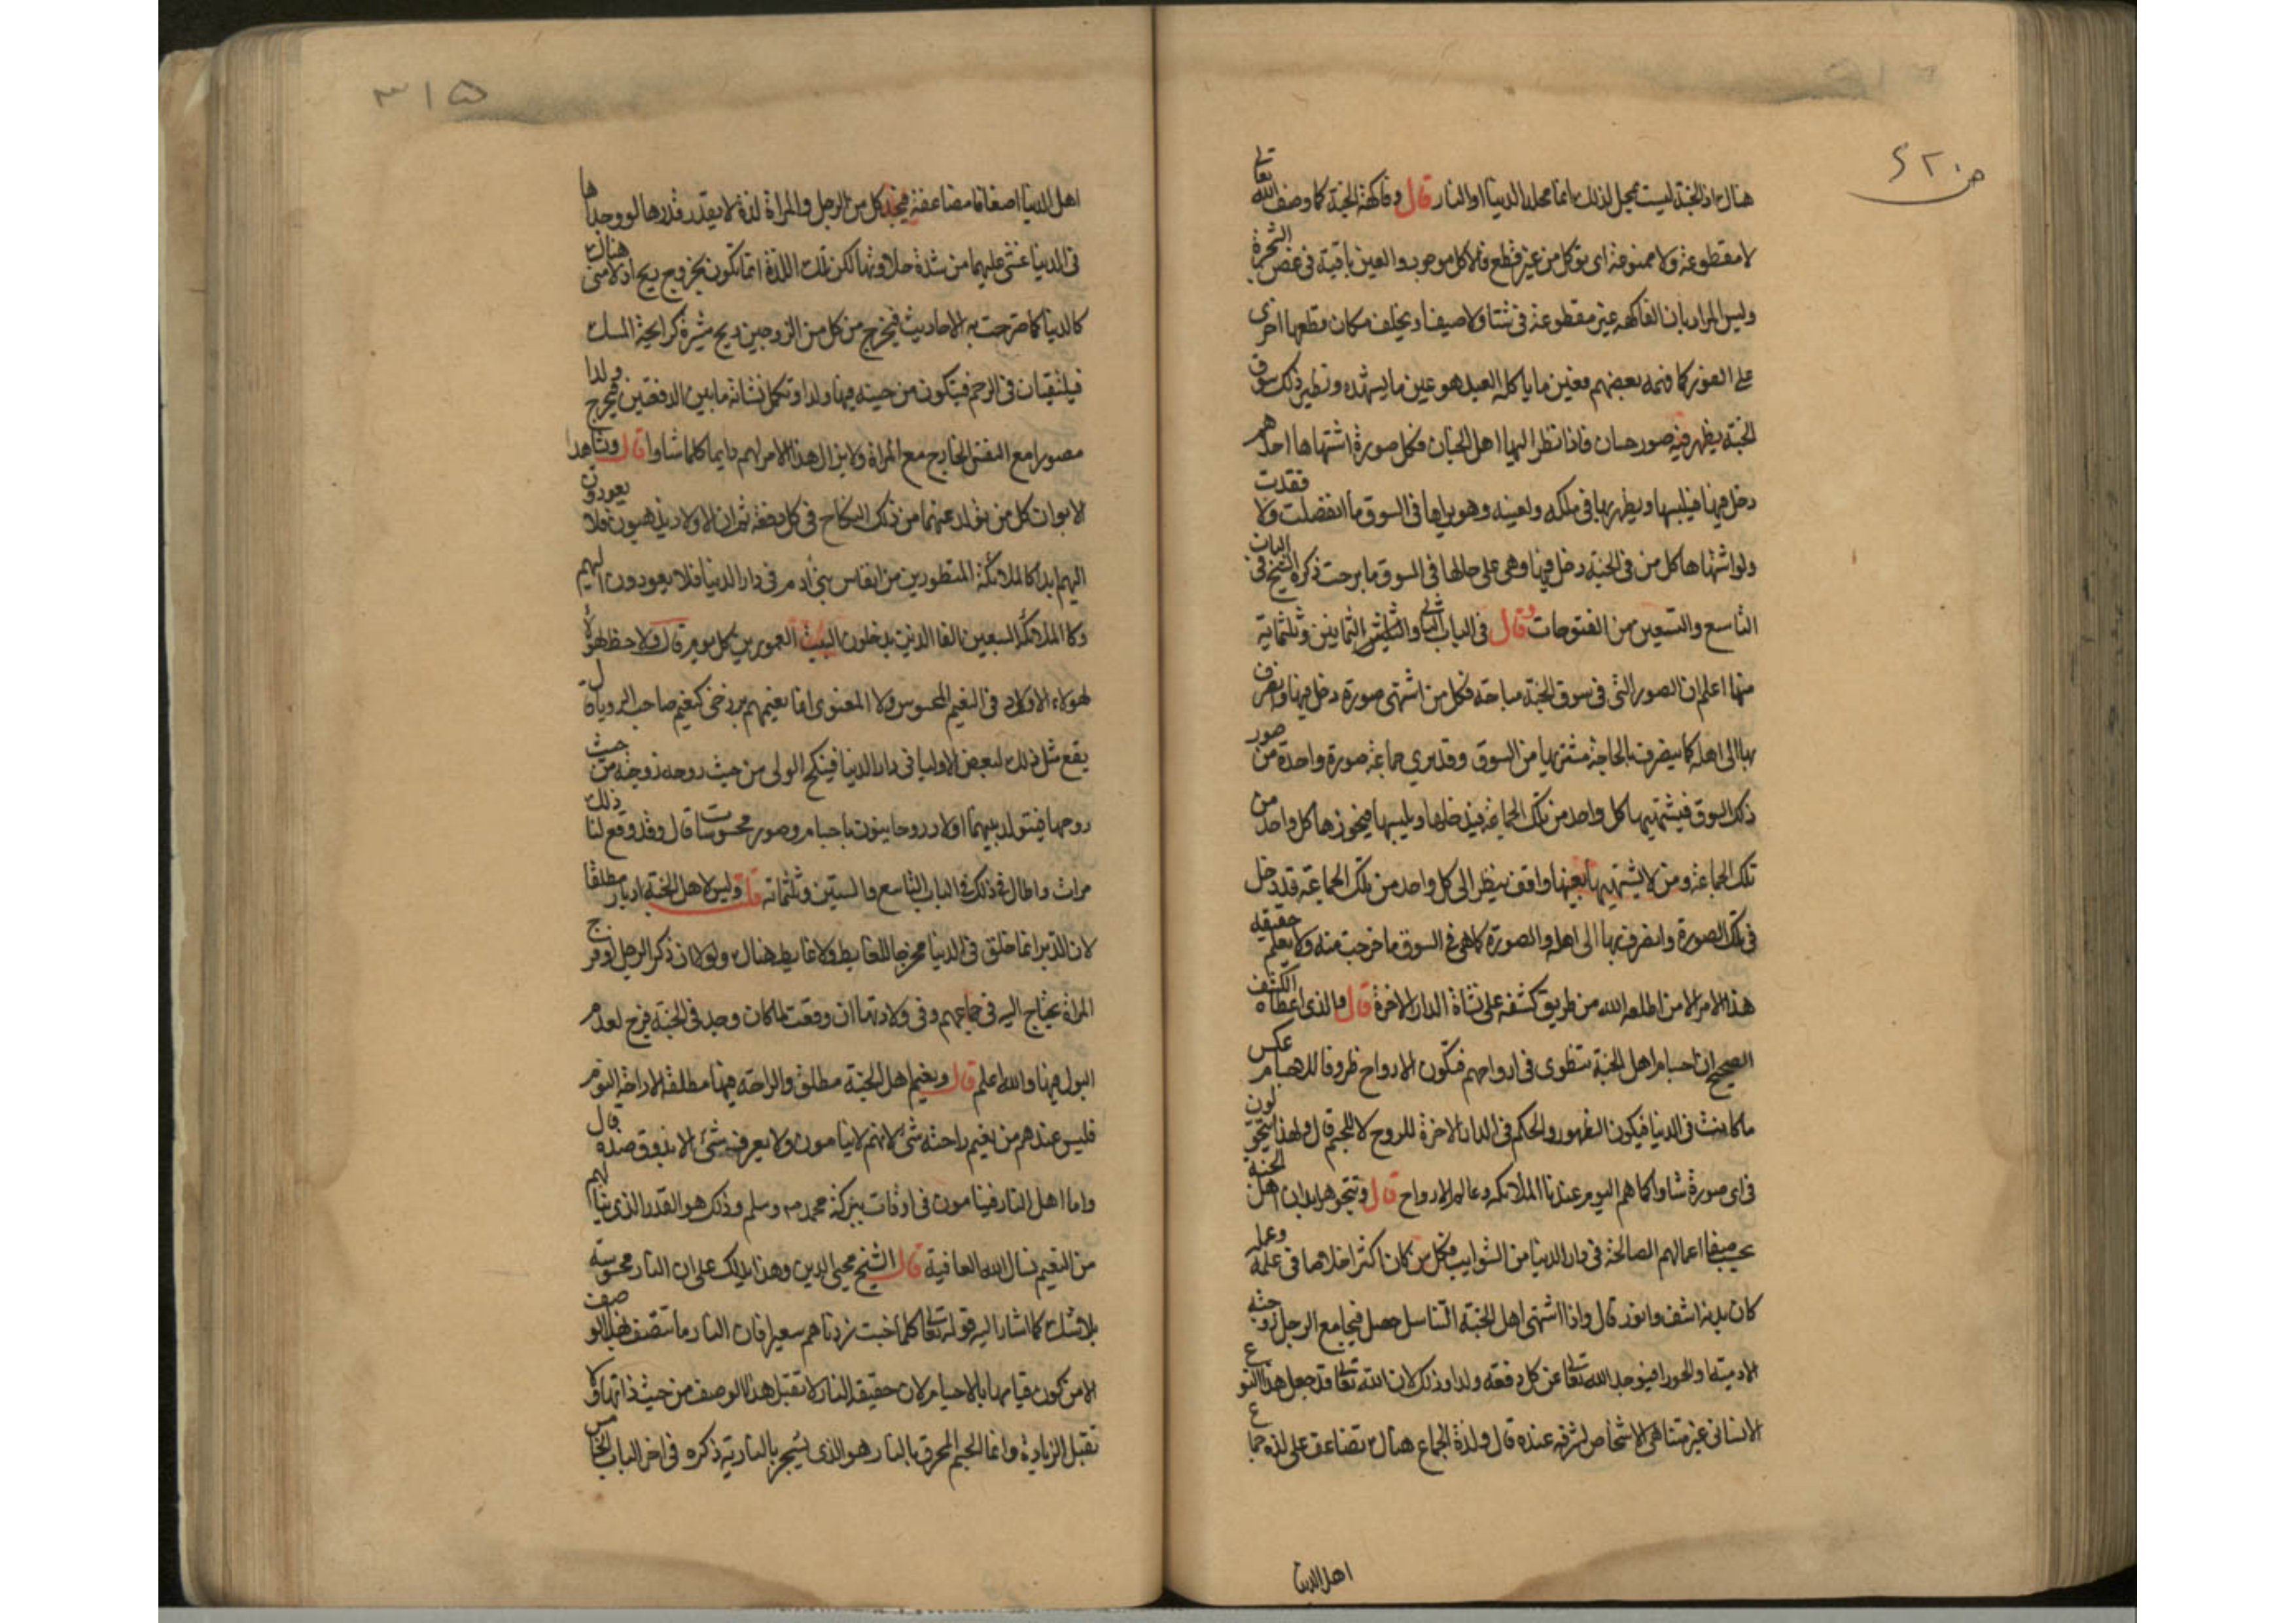 هناك اذ الجنة ليست بمحل لذلك انما محله الدنيا او النار قال وفاكهة الجنة كما وصف الله تعالى
لا مقطوعة ولا ممنوعة اى توكل من غير قطع فالاكل موجود والعين باقية فى غصن الشجرة
وليس المراد بان الفاكهه غير مقطوعة فى شتا ولا صيف او يخلف مكان قطعها اخرى
على الفور كما فهمه بعضهم فعين ما ياكله العبد هو عين ما يشهده ونظير ذلك سوق
الجنة يظهر فيه صور حسان فاذا نظر اليها اهل الجنان فكل صورة اشتهاها احدهم
دخل فيها فيلبسها ويظهر بها فى ملكه ولعينه وهو يراها فى السوق ما انفصلت ولا فقدت
ولو اشتهاها كل من فى الجنة دخل فيها وهى على حالها فى السوق ما برحت ذكره الشيخ فى الباب
التاسع والتسعين من الفتوحات وقال فى الباب الثانى والثمانين وثلثماية
منها اعلم ان الصور التى فى سوق الجنة مباحة فكل من اشتهى صورة دخل فيها وانصرف
بها الى اهله كما ينصرف بالحاجة يشتريها من السوق وقد يرى جماعة صورة واحدة من صور
ذلك السوق فيشتهيها كل واحد من تلك الجماعة فيدخلها ويلبسها فيحوزها كل واحد من
تلك الجماعة ومن لا يشتهيها بعينها واقف ينظر الى كل واحد من تلك الجماعة قد دخل
فى تلك الصورة وانصرف بها الى اهله والصورة كما هى فى السوق ما خرجت منه ولا يعلم حقيقة
هذا الامر الا من اطلعه الله من طريق كشفه على نشاة الدار الاخرة قال والذى اعطاه الكشف
الصحيح ان اجسام اهل الجنة تنطوى فى ارواحهم فتكون الارواح ظروفا للاجسام عكس
ما كانت فى الدنيا فيكون الظهور والحكم فى الدار الاخرة للروح لا للجسم قال ولهذا يتحولون
فى اى صورة شاوا كما هم اليوم عندنا الملائكه وعالم الارواح قال وتتجوهر ابدان اهل الجنة
بحسب صفا اعمالهم الصالحة فى دار الدنيا من الشوايب فكل من كان اكثر اخلاصا فى علمه وعمله
كان بدنه اشف وانور قال واذا اشتهى اهل الجنة التناسل حصل فيجامع الرجل زوجته
الادمية او الحورا فيوجد الله تعالى عن كل دفعة ولدا وذلك لان الله تعالى قد جعل هذا النوع
الانسانى غير متناهى الاشخاص لشرفه عنده قال ولذة الجماع هناك تضاعف على لذة جماع
اهل الدنيا
٣١٥
اهل الدنيا اضعافا مضاعفة فيجد كل من الرجل والمراة لذة لا يقدر قدرها لو وجداها
فى الدنيا غشى عليهما من شدة حلاوتها لكن تلك اللذة انما تكون بخروج ريح اذ لا منى هناك
كالدنيا كما صرحت به الاحاديث فيخرج من كل من الزوجين ريح مثيرة كرايحة المسك
فيلتقيان فى الرحم فيتكون من حينه فيها ولدا وتكمل نشاته ما بين الدفعتين فيخرج ولدا
مصورا مع النفس الخارج مع المراة ولا يزال هذا الامر لهم دايما كلما شاوا قال ويشاهد
الابوان كل من تولد عنهما من ذلك النكاح فى كل دفعة ثم ان الاولاد يذهبون فلا يعودون
اليهم ابدا كالملائكة المتطورين من انفاس بنى ادم فى دار الدنيا فلا يعودون اليهم
وكالملائكة السبعين الفا الذين يدخلون البيت المعمور من كل يوم قال ولا حظ لهولاء
لهولاء الاولاد فى النعيم المحسوس ولا المعنوى انما نعيمهم برزخى كنعيم صاحب الرويا قال
يقع مثل ذلك لبعض الاوليا فى دار الدنيا فينكح الولى من حيث روحه زوجته من حيث
روحها فيتولد بينهما اولاد روحانيون باجسام وصور محسوسات قال وقد وقع لنا ذلك
مرات واطال فى ذلك فى الباب التاسع والستين وثلثماته قلت وليس لاهل الجنة ادبار مطلقا
لان الدبر انما خلق فى الدنيا مخرجا للغايط ولا غايط هناك ولولا ان ذكر الرجل وفرج
المراة يحتاج اليه فى جماعهم وفى ولادتها ان وقعت لما كان وجد فى الجنة فرج لعدم
البول فيها والله اعلم قال ونعيم اهل الجنة مطلق والراحة فيها مطلقة الا راحة النوم
فليس عندهم من نعيم راحته شئ لانهم لا ينامون ولا يعرف شئ الا بذوق ضده قال
واما اهل النار فينامون فى اوقات ببركة محمد ص وسلم وذلك هو القدر الذى ينالهم
من النعيم نسال الله العافية قال الشيخ محيى الدين وهذا يدلك على ان النار محسوسة
بلا شك كما اشار اليه قوله تعالى كلما خبت زدناهم سعيرا فان النار ما تتصف بهذا الوصف
الا من كون قيامها بالاجسام لان حقيقة النار لا تقبل هذا الوصف من حيث ذاتها ولا
تقبل الزيادة وانما الجسم المحرق بالنار هو الذى يسجر بالنارية ذكره فى اخر الباب الخامس